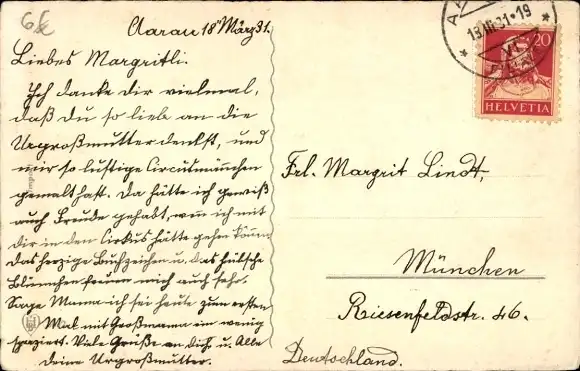 6€
Aarau 18. März 31.
Liebes Margritli.
Ich danke dir vielmal,
daß du so lieb an die
Urgroßmutter denkst, und
mir so lustige Circusmännchen
gemalt hast. Da hätte ich gewiß
auch Freude gehabt, wen ich mit
dir in den Cirkus hätte gehen können
das herzige Buchzeichen u. das hübsche
Blümchen freuen mich auch sehr.
Sage Mama ich sei heute zum ersten
Mal mit Großmama ein wenig
spaziert. Viele Grüße an dich u. Alle
deine Urgroßmutter.
18.III.31-19
VI
20
HELVETIA
Frl. Margrit Lindt,
München
Riesenfeldstr. 46.
Deutschland.